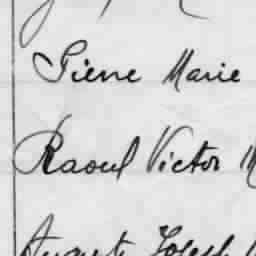 Pierre Marie
Raoul Victor
August Joseph